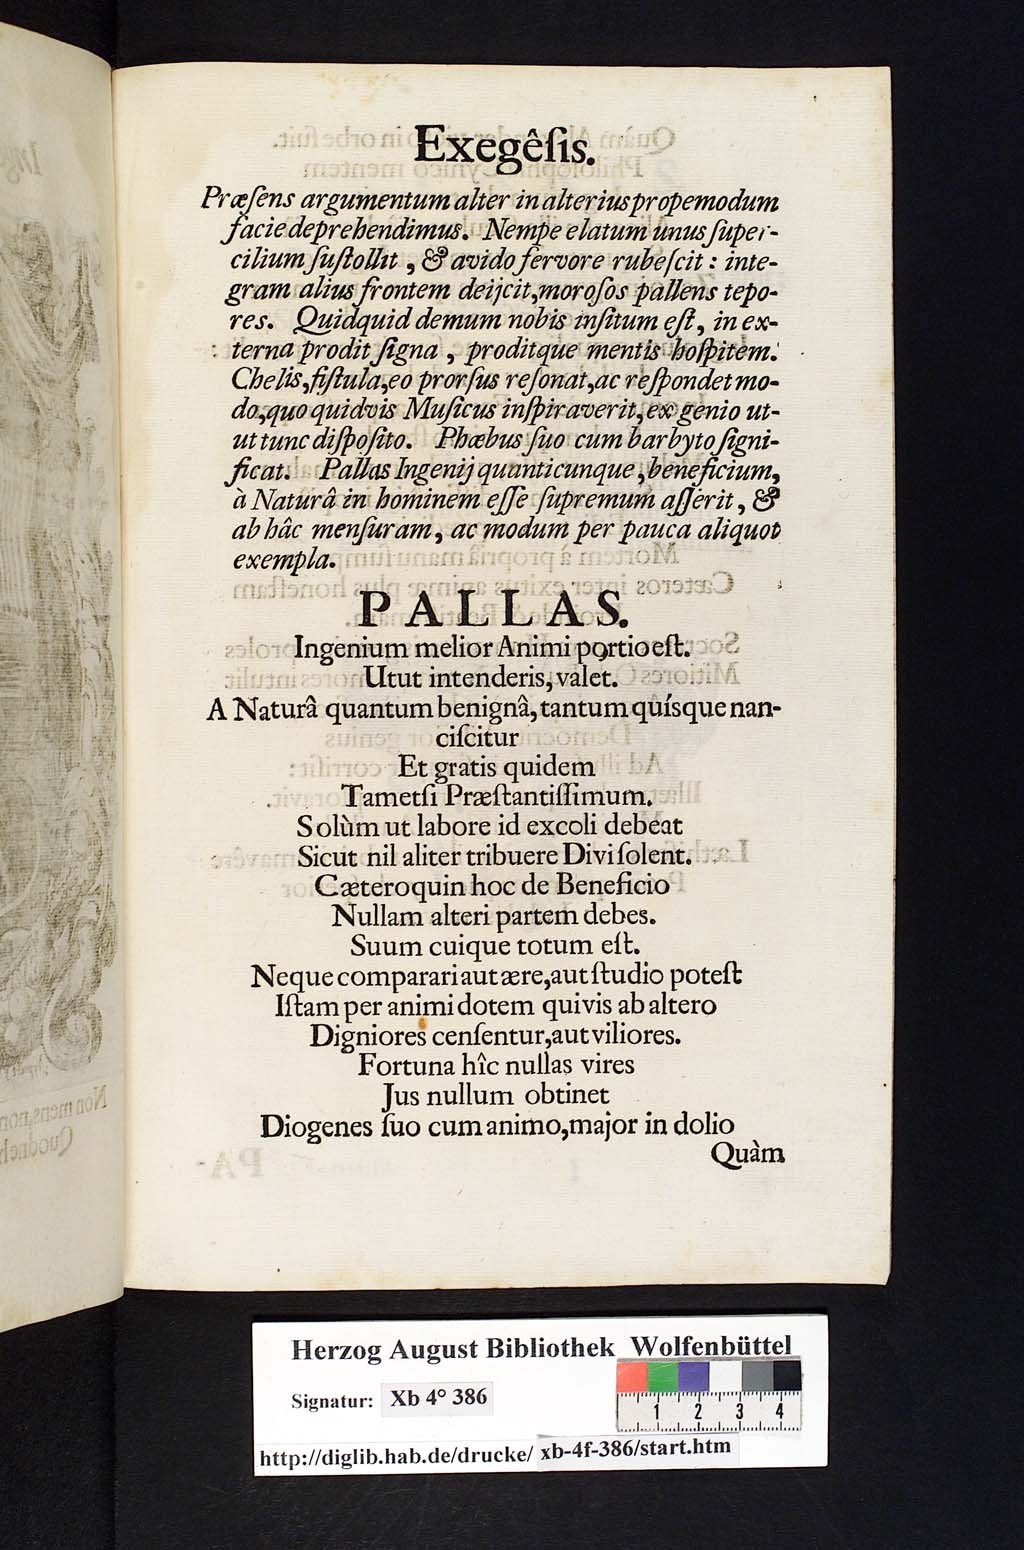 Exegêſis.
Præſens argumentum alter in alterius propemodum
facie deprehendimus. Nempe elatum unus ſuper-
cilium ſuſtollit, & avido fervore rubeſcit: inte-
gram alius frontem deijcit, moroſos pallens tepo-
res. Quidquid demum nobis inſitum eſt, in ex-
terna prodit ſigna, proditque mentis hoſpitem.
Chelis, fiſtula, eo prorſus reſonat, ac reſpondet mo-
do, quo quidvis Muſicus inſpiraverit, ex genio ut-
ut tunc diſpoſito. Phæbus ſuo cum barbyto ſigni-
ficat. Pallas Ingenij quanticunque, beneficium,
à Naturâ in hominem eſſe ſupremum aſſerit, &
ab hâc menſuram, ac modum per pauca aliquot
exempla.
PALLAS.
Ingenium melior Animi portio eſt.
Utut intenderis, valet.
A Naturâ quantum benignâ, tantum quísque nan-
ciſcitur
Et gratis quidem
Tametſi Præſtantiſſimum.
Solùm ut labore id excoli debeat
Sicut nil aliter tribuere Divi ſolent.
Cæteroquin hoc de Beneficio
Nullam alteri partem debes.
Suum cuique totum eſt.
Neque comparari aut ære, aut ſtudio poteſt
Iſtam per animi dotem quivis ab altero
Digniores cenſentur, aut viliores.
Fortuna hîc nullas vires
Jus nullum obtinet
Diogenes ſuo cum animo, major in dolio
Quàm
Non mens, non
Herzog August Bibliothek Wolfenbüttel
Signatur: Xb 4° 386
1 2 3 4
http://diglib.hab.de/drucke/ xb-4f-386/start.htm